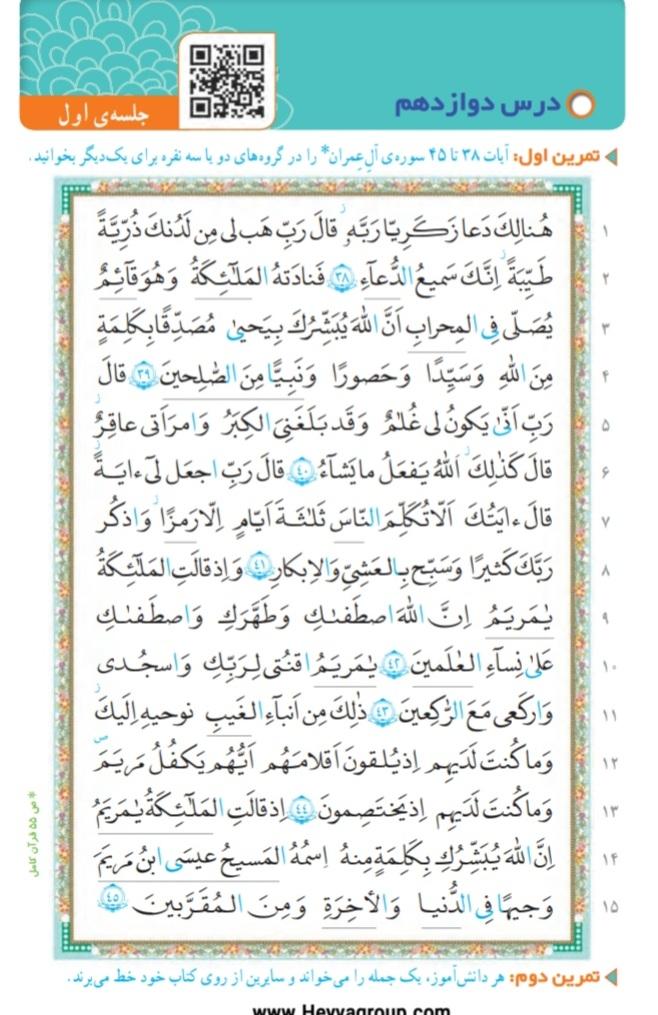 درس دوازدهم
جلسه‌ی اول
تمرین اول: آیات ۳۸ تا ۴۵ سوره‌ی آلِ عِمران* را در گروه‌های دو یا سه نفره برای یک‌دیگر بخوانید.
۱ هُنالِكَ دَعا زَكَرِيّا رَبَّهٗ قالَ رَبِّ هَب لی مِن لَدُنكَ ذُرِّيَّةً
۲ طَيِّبَةً اِنَّكَ سَميعُ الدُّعآءِ ۳۸ فَنادَتهُ المَلٰٓئِكَةُ وَهُوَ قآئِمٌ
۳ يُصَلّی فِی المِحرابِ اَنَّ اللّٰهَ يُبَشِّرُكَ بِيَحيیٰ مُصَدِّقًا بِكَلِمَةٍ
۴ مِنَ اللّٰهِ وَسَيِّدًا وَحَصورًا وَنَبِيًّا مِنَ الصّٰلِحينَ ۳۹ قالَ
۵ رَبِّ اَنّیٰ يَكونُ لی غُلٰمٌ وَقَد بَلَغَنِیَ الكِبَرُ وَامرَاَتی عاقِرٌ
۶ قالَ كَذٰلِكَ اللّٰهُ يَفعَلُ ما يَشآءُ ۴۰ قالَ رَبِّ اجعَل لی ءايَةً
۷ قالَ ءايَتُكَ اَلّا تُكَلِّمَ النّاسَ ثَلٰثَةَ اَيّامٍ اِلّا رَمزًا وَاذكُر
۸ رَبَّكَ كَثيرًا وَسَبِّح بِالعَشِیِّ وَالاِبكارِ ۴۱ وَاِذ قالَتِ المَلٰٓئِكَةُ
۹ يٰمَريَمُ اِنَّ اللّٰهَ اصطَفٰىكِ وَطَهَّرَكِ وَاصطَفٰىكِ
۱۰ عَلیٰ نِسآءِ العٰلَمينَ ۴۲ يٰمَريَمُ اقنُتی لِرَبِّكِ وَاسجُدی
۱۱ وَاركَعی مَعَ الرّٰكِعينَ ۴۳ ذٰلِكَ مِن اَنبآءِ الغَيبِ نوحيهِ اِلَيكَ
۱۲ وَما كُنتَ لَدَيهِم اِذ يُلقونَ اَقلامَهُم اَيُّهُم يَكفُلُ مَريَمَ
۱۳ وَما كُنتَ لَدَيهِم اِذ يَختَصِمونَ ۴۴ اِذ قالَتِ المَلٰٓئِكَةُ يٰمَريَمُ
۱۴ اِنَّ اللّٰهَ يُبَشِّرُكِ بِكَلِمَةٍ مِنهُ اسمُهُ المَسيحُ عيسَی ابنُ مَريَمَ
۱۵ وَجيهًا فِی الدُّنيا وَالأٰخِرَةِ وَمِنَ المُقَرَّبينَ ۴۵
* ص ۵۵ قرآن کامل
تمرین دوم: هر دانش‌آموز، یک جمله را می‌خواند و سایرین از روی کتاب خود خط می‌برند.
www.Heyvagroup.com